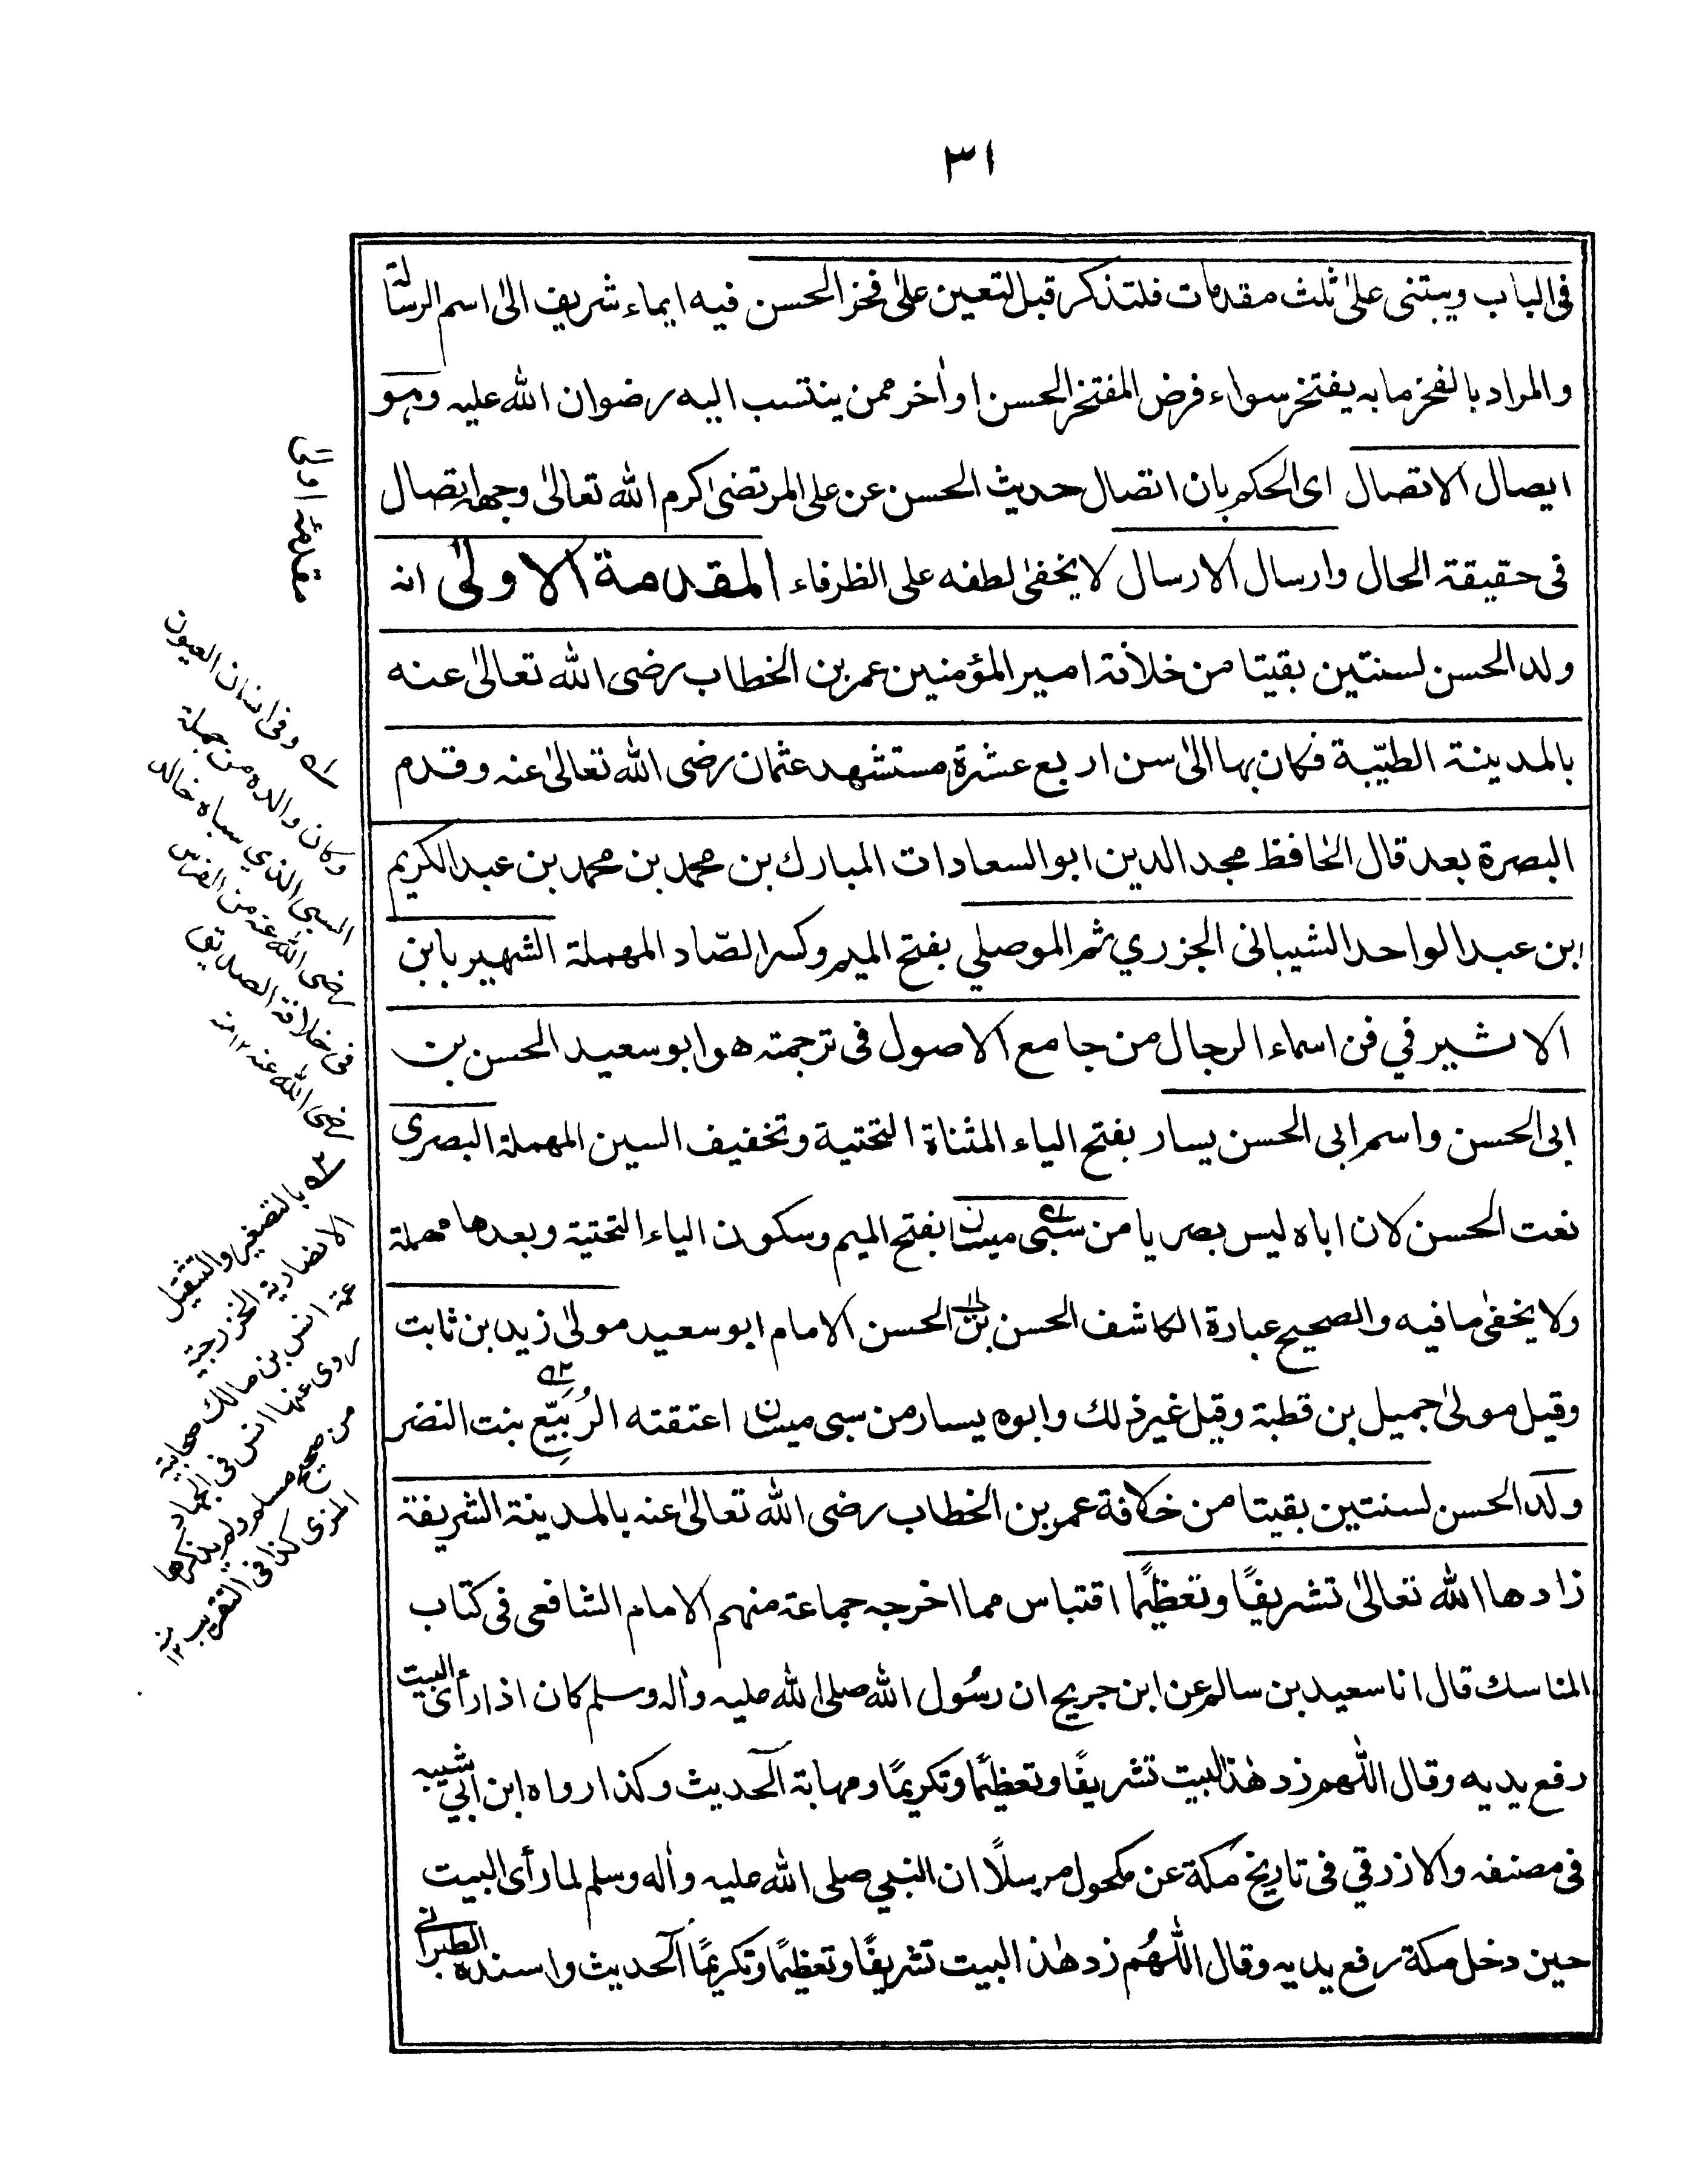 ٣١
فى الباب ويبتنى علىٰ ثلث مقدمات فلتذكر قبل لتعين علىٰ فخر الحسن فيه ايماء شريف الىٰ اسم الرسالة
والمراد بالفخر ما به يفتخر سواء فرض المفتخر الحسن او اٰخر ممن ينتسب اليه رضوان الله عليه وهو
ايصال الاتصال اى الحكم بان اتصال حديث الحسن عن على المرتضىٰ كرم الله تعالىٰ وجهه اتصال
فى حقيقة الحال وارسال الارسال لا يخفىٰ لطفه على الظرفاء المقدمة الاولىٰ انه
ولد الحسن لسنتين بقيتا من خلافة امير المؤمنين عمر بن الخطاب رضى الله تعالىٰ عنه
بالمدينة الطيّبة فكان بها الىٰ سن اربع عشرة مستشهد عثمان رضى الله تعالىٰ عنه وقدم
البصرة بعد قال الحافظ مجد الدين ابو السعادات المبارك بن محمد بن محمد بن عبد الكريم
ابن عبد الواحد الشيبانى الجزري ثم الموصلي بفتح الميم وكسر الصّاد المهملة الشهير بابن
الاثير في فن اسماء الرجال من جامع الاصول فى ترجمته هو ابو سعيد الحسن بن
ابى الحسن واسم ابى الحسن يسار بفتح الياء المثناة التحتية وتخفيف السين المهملة البصرى
نعت الحسن لان اباه ليس بصريا من سبى ميسان بفتح الميم وسكون الياء التحتية وبعدها مهملة
ولا يخفىٰ ما فيه والصحيح عبارة الكاشف الحسن بن ابى الحسن الامام ابو سعيد مولىٰ زيد بن ثابت
وقيل مولىٰ جميل بن قطبة وقيل غير ذلك وابوه يسار من سبى ميسان اعتقته الرُبَيِّع بنت النضر
ولد الحسن لسنتين بقيتا من خلافة عمر بن الخطاب رضى الله تعالىٰ عنه بالمدينة الشريفة
زادها الله تعالىٰ تشريفًا وتعظيمًا اقتباس مما اخرجه جماعة منهم الامام الشافعى فى كتاب
المناسك قال انا سعيد بن سالم عن ابن جريج ان رسُول الله صلى الله عليه واٰله وسلم كان اذا رأى البيت
رفع يديه وقال اللّٰهم زد هٰذا البيت تشريفًا وتعظيمًا وتكريمًا ومهابة اٰلحديث وكذا رواه ابن ابي شيبه
فى مصنفه والازرقي فى تاريخ مكة عن مكحول مرسلًا ان النبي صلى الله عليه واٰله وسلم لما رأى البيت
حين دخل مكة رفع يديه وقال اللّٰهُم زد هٰذا البيت تشريفًا وتعظيمًا وتكريمًا اٰلحديث واسنده الطبراني
مقدمۂ اولىٰ
١ه وفى انسان العيون
وكان والده من جملة
السبى الذي سباه خالد
رضى الله عنه من الفرس
فى خلافة الصديق
رضى الله عنه ١٢ منه
٢ه بالتصغير والتثقيل
الانصارية الخزرجية
عمة انس بن مالك صحابية
روى عنها انس فى الجهاد
من صحيح مسلم ولم يذكرها
المزى كذا فى التقريب ١٢ منه